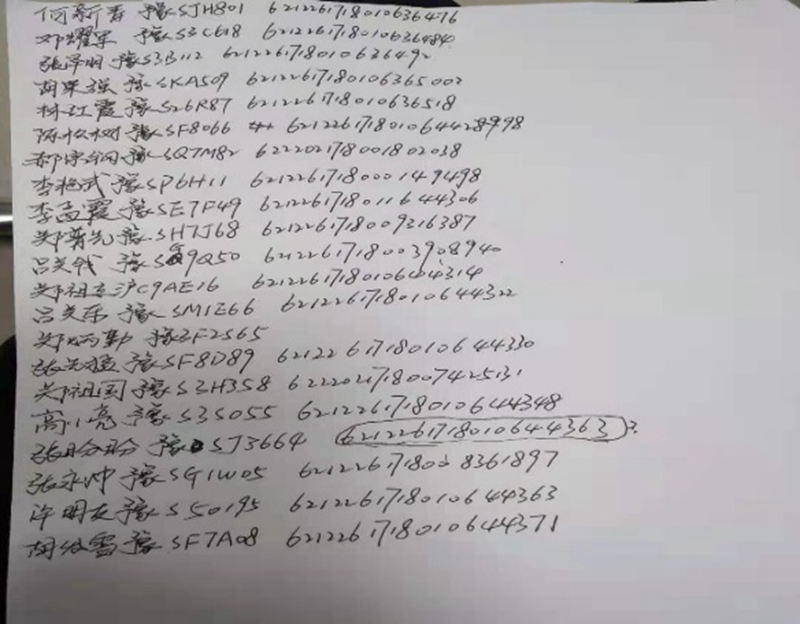 何新春 豫SJH801 6212261718010636476
邓耀军 豫S3C618 6212261718010636484
张泽明 豫S3B112 6212261718010636492
胡果强 豫SKA509 62122617180106365002
林红霞 豫S26R87 6212261718010636518
陈松树 豫SF8066 621226171801064428998
郝宗钢 豫SQ7M82 6222021718001802038
李艳武 豫SP6H11 6212261718000149498
李孟霞 豫SE7F49 6212261718011644306
郑尊先 豫SH7J68 6212261718009316387
吕关钱 豫S99Q50 6212261718003908940
郑祖立 沪C9AE16 6212261718010644314
吕关东 豫SM1E66 6212261718010644322
郑 勤 豫SF2S65
张先猛 豫SF8D89 6212261718010644330
郑祖国 豫S3H358 6222021718007425131
高小亮 豫S3S055 6212261718010644348
张盼盼 豫SJ3664 6212261718010644363 ?
张永帅 豫SG1W05 6212261718008361897
许明友 豫S50195 6212261718010644363
胡俊雪 豫SF7A08 6212261718010644371